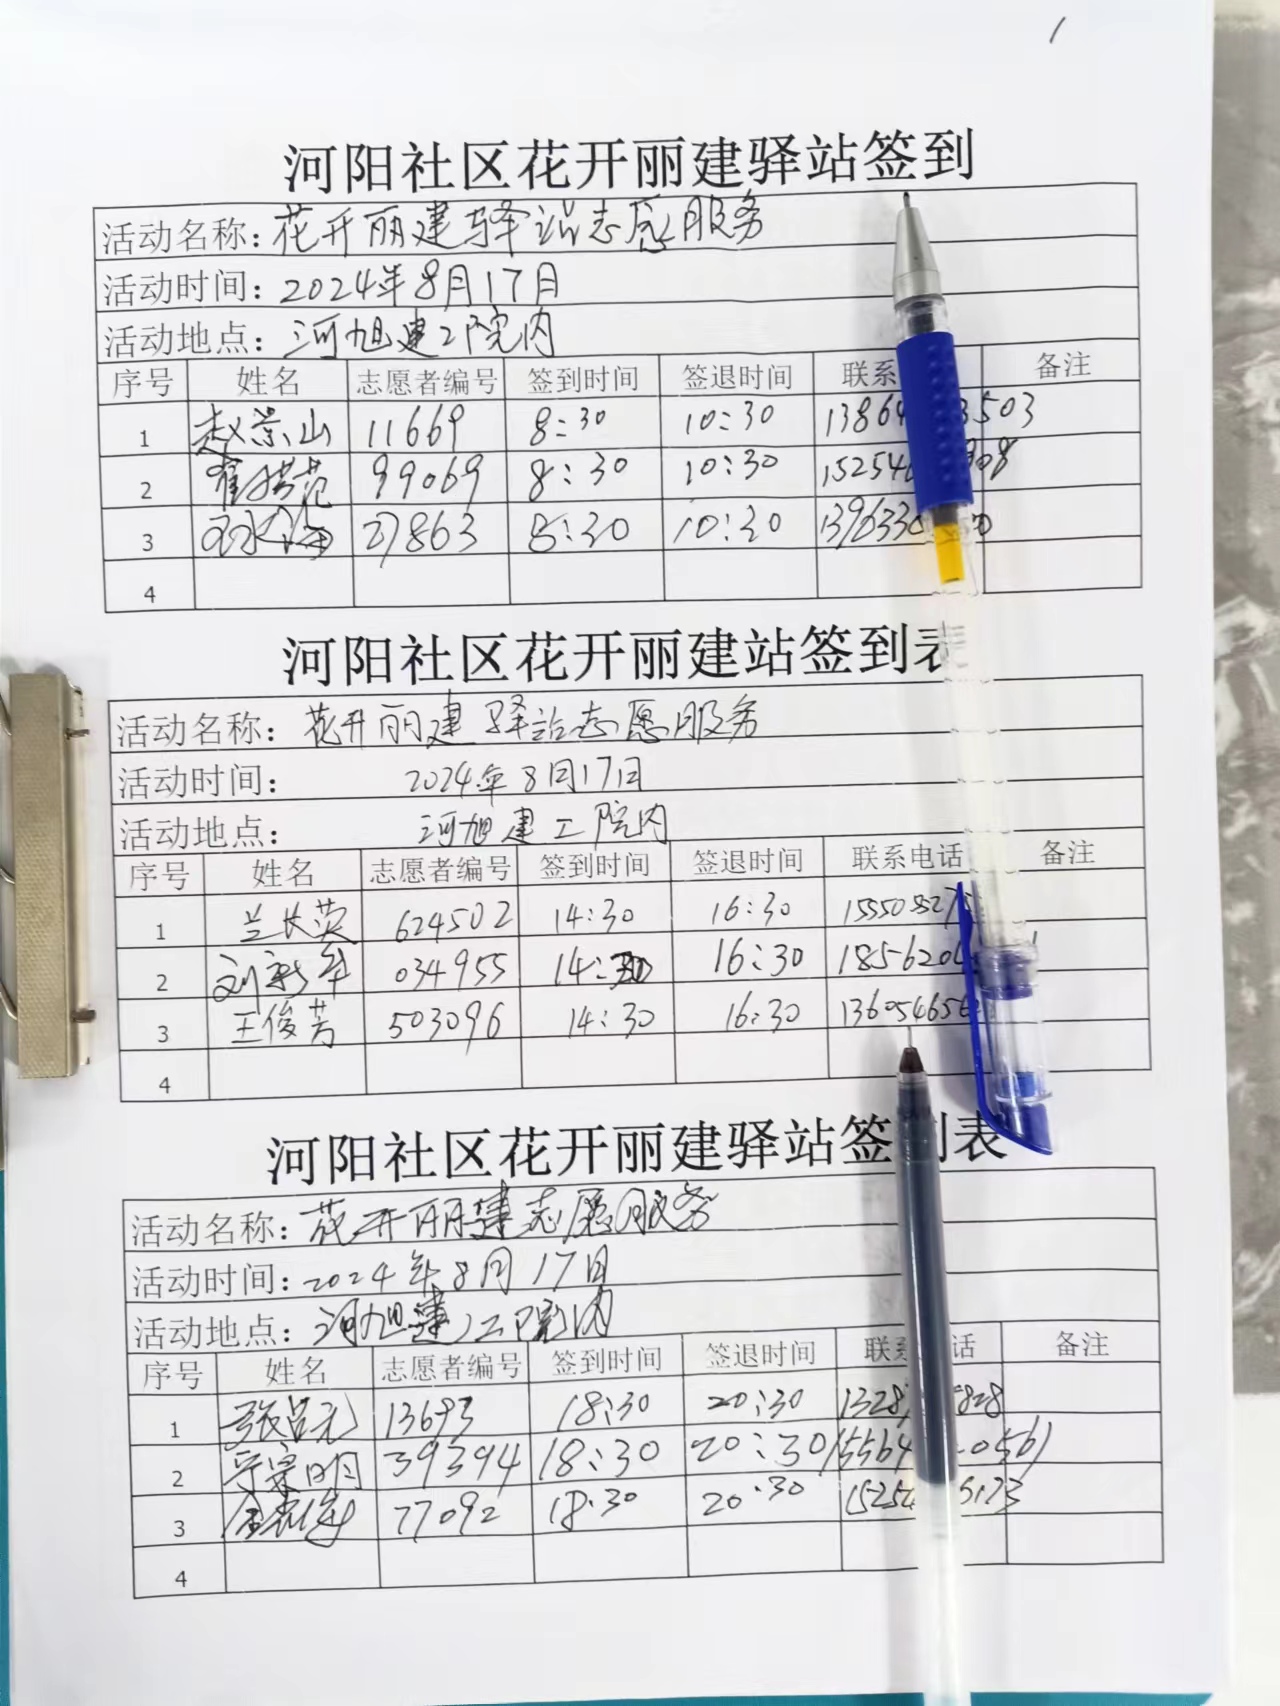 河阳社区花开丽建驿站签到
活动名称：花开丽建驿站志愿服务
活动时间：2024年8月17日
活动地点：河旭建工院内
序号 姓名 志愿者编号 签到时间 签退时间 联系 备注
1 赵景山 11669 8:30 10:30 13864 3503
2 99069 8:30 10:30 15254 908
3 27863 8:30 10:30 1396330
4
河阳社区花开丽建站签到表
活动名称：花开丽建驿站志愿服务
活动时间： 2024年8月17日
活动地点： 河旭建工院内
序号 姓名 志愿者编号 签到时间 签退时间 联系电话 备注
1 兰长英 624502 14:30 16:30 155505275
2 刘新华 034955 14:30 16:30 1856204
3 王俊芳 503096 14:30 16:30 136054656
4
河阳社区花开丽建驿站签到表
活动名称：花开丽建志愿服务
活动时间：2024年8月17日
活动地点：河旭建工院内
序号 姓名 志愿者编号 签到时间 签退时间 联系 话 备注
1 13693 18:30 20:30 1328 828
2 39394 18:30 20:30 15564 0561
3 77092 18:30 20:30 15254 5173
4